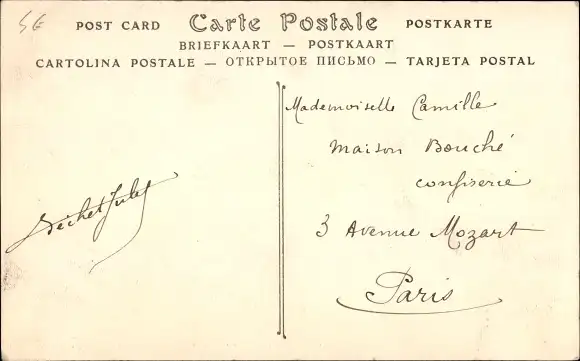 5€
POST CARD Carte Postale POSTKARTE
BRIEFKAART — POSTKAART
CARTOLINA POSTALE — ОТКРЫТОЕ ПИСЬМО — TARJETA POSTAL
Mademoiselle Camille
Maison Bouché
confiserie
3 Avenue Mozart
Paris